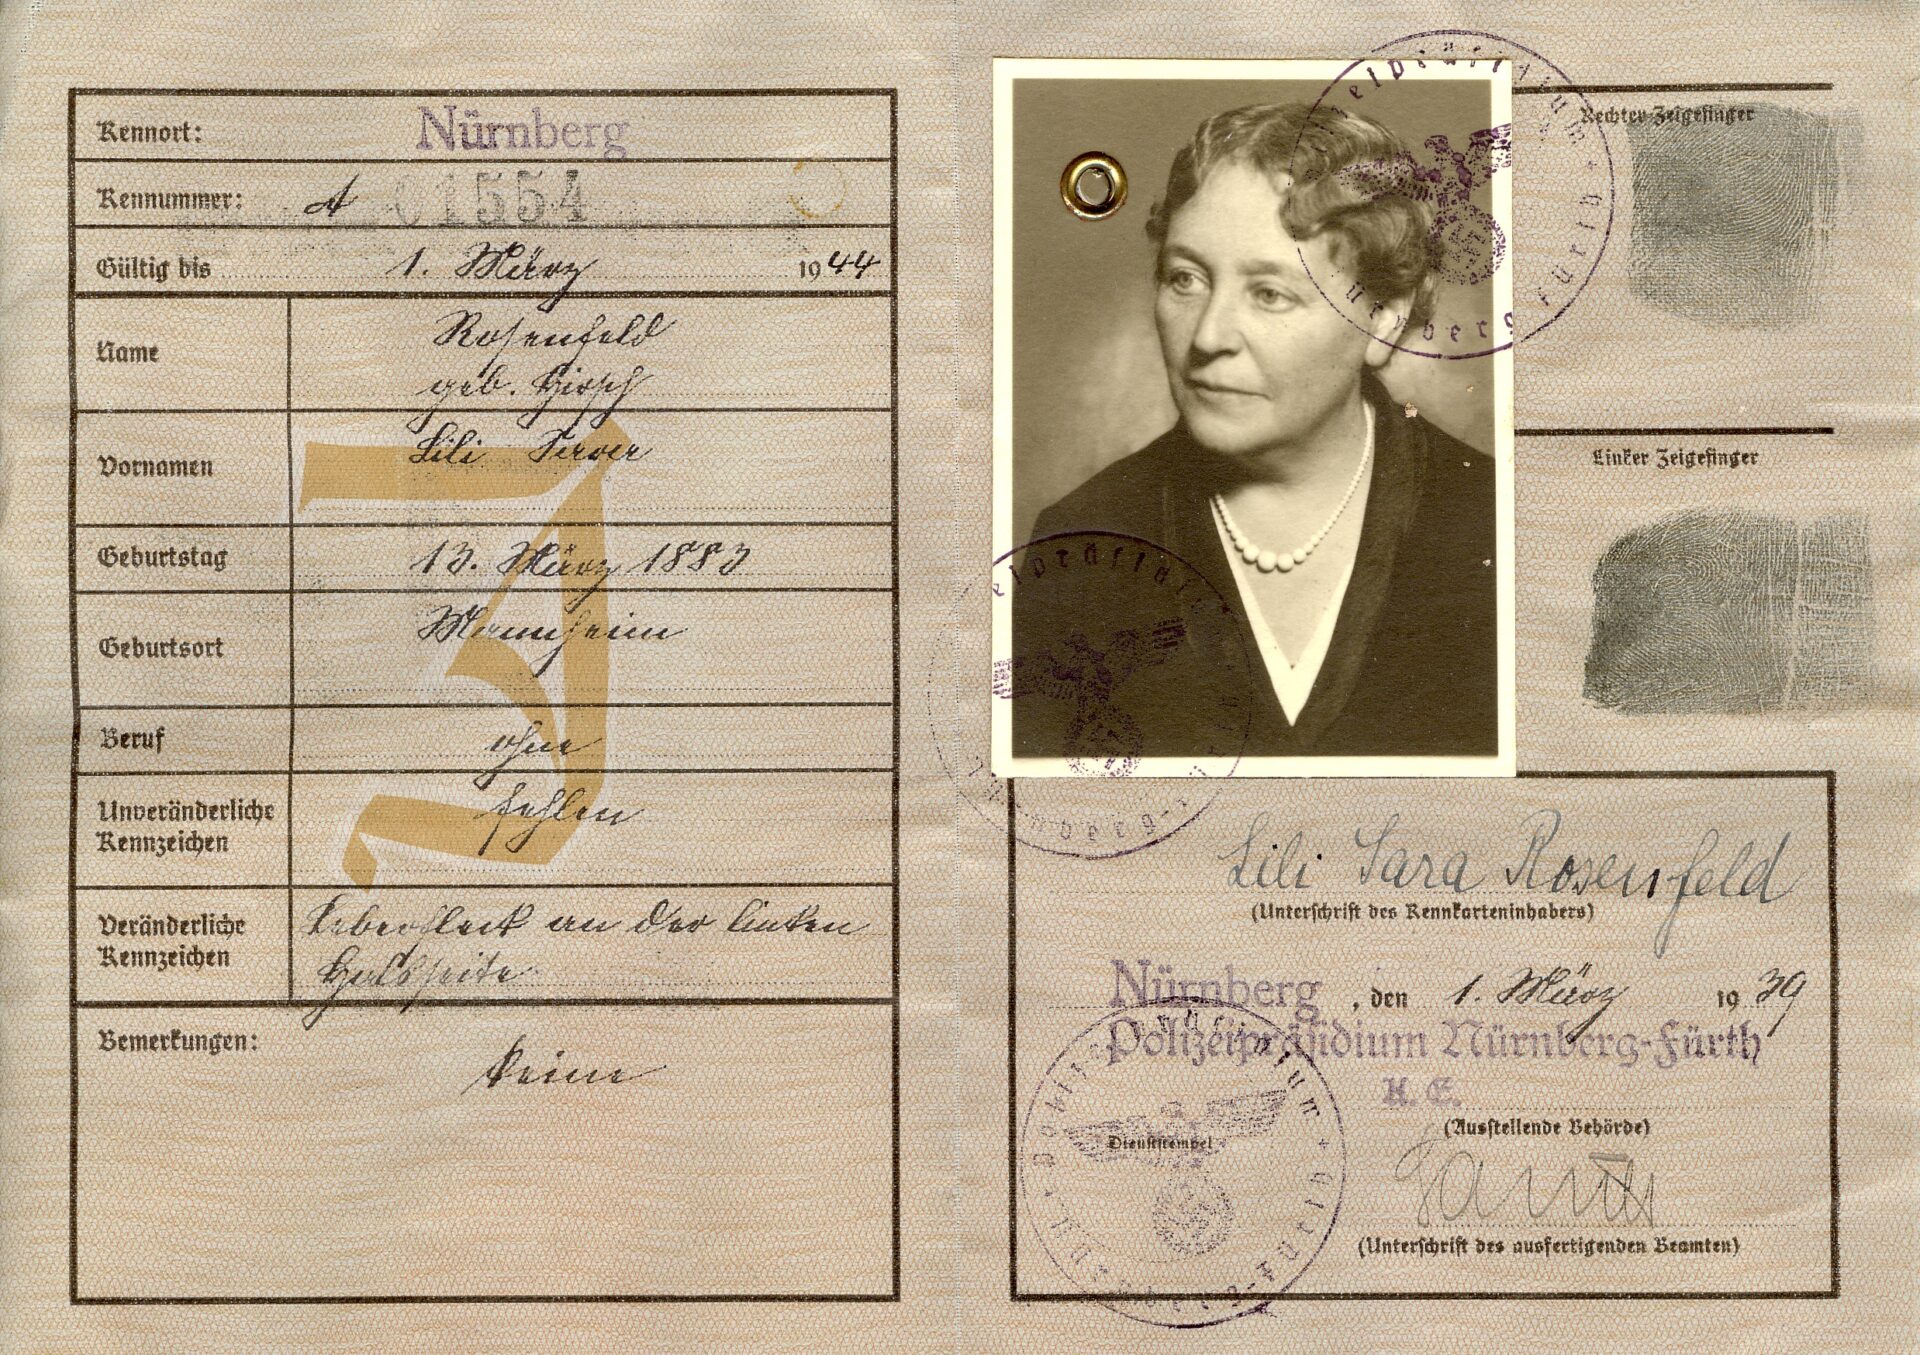 Kennort: Nürnberg
Kennummer: A 01554
Gültig bis 1. März 1944
Name Rosenfeld
geb. Hirsch
Vornamen Lili Sara
Geburtstag 13. März 1883
Geburtsort Mannheim
Beruf ohne
Unveränderliche Kennzeichen fehlen
Veränderliche Kennzeichen Leberfleck an der linken
Halsseite
Bemerkungen: Keine
J
Rechter Zeigefinger
Linker Zeigefinger
Polizeipräsidium Nürnberg-Fürth
Polizeipräsidium Nürnberg-Fürth
Lili Sara Rosenfeld
(Unterschrift des Kennkarteninhabers)
Nürnberg, den 1. März 1939
Polizeipräsidium Nürnberg-Fürth
(Ausstellende Behörde)
Dienststempel
Polizeipräsidium Nürnberg-Fürth
(Unterschrift des ausfertigenden Beamten)